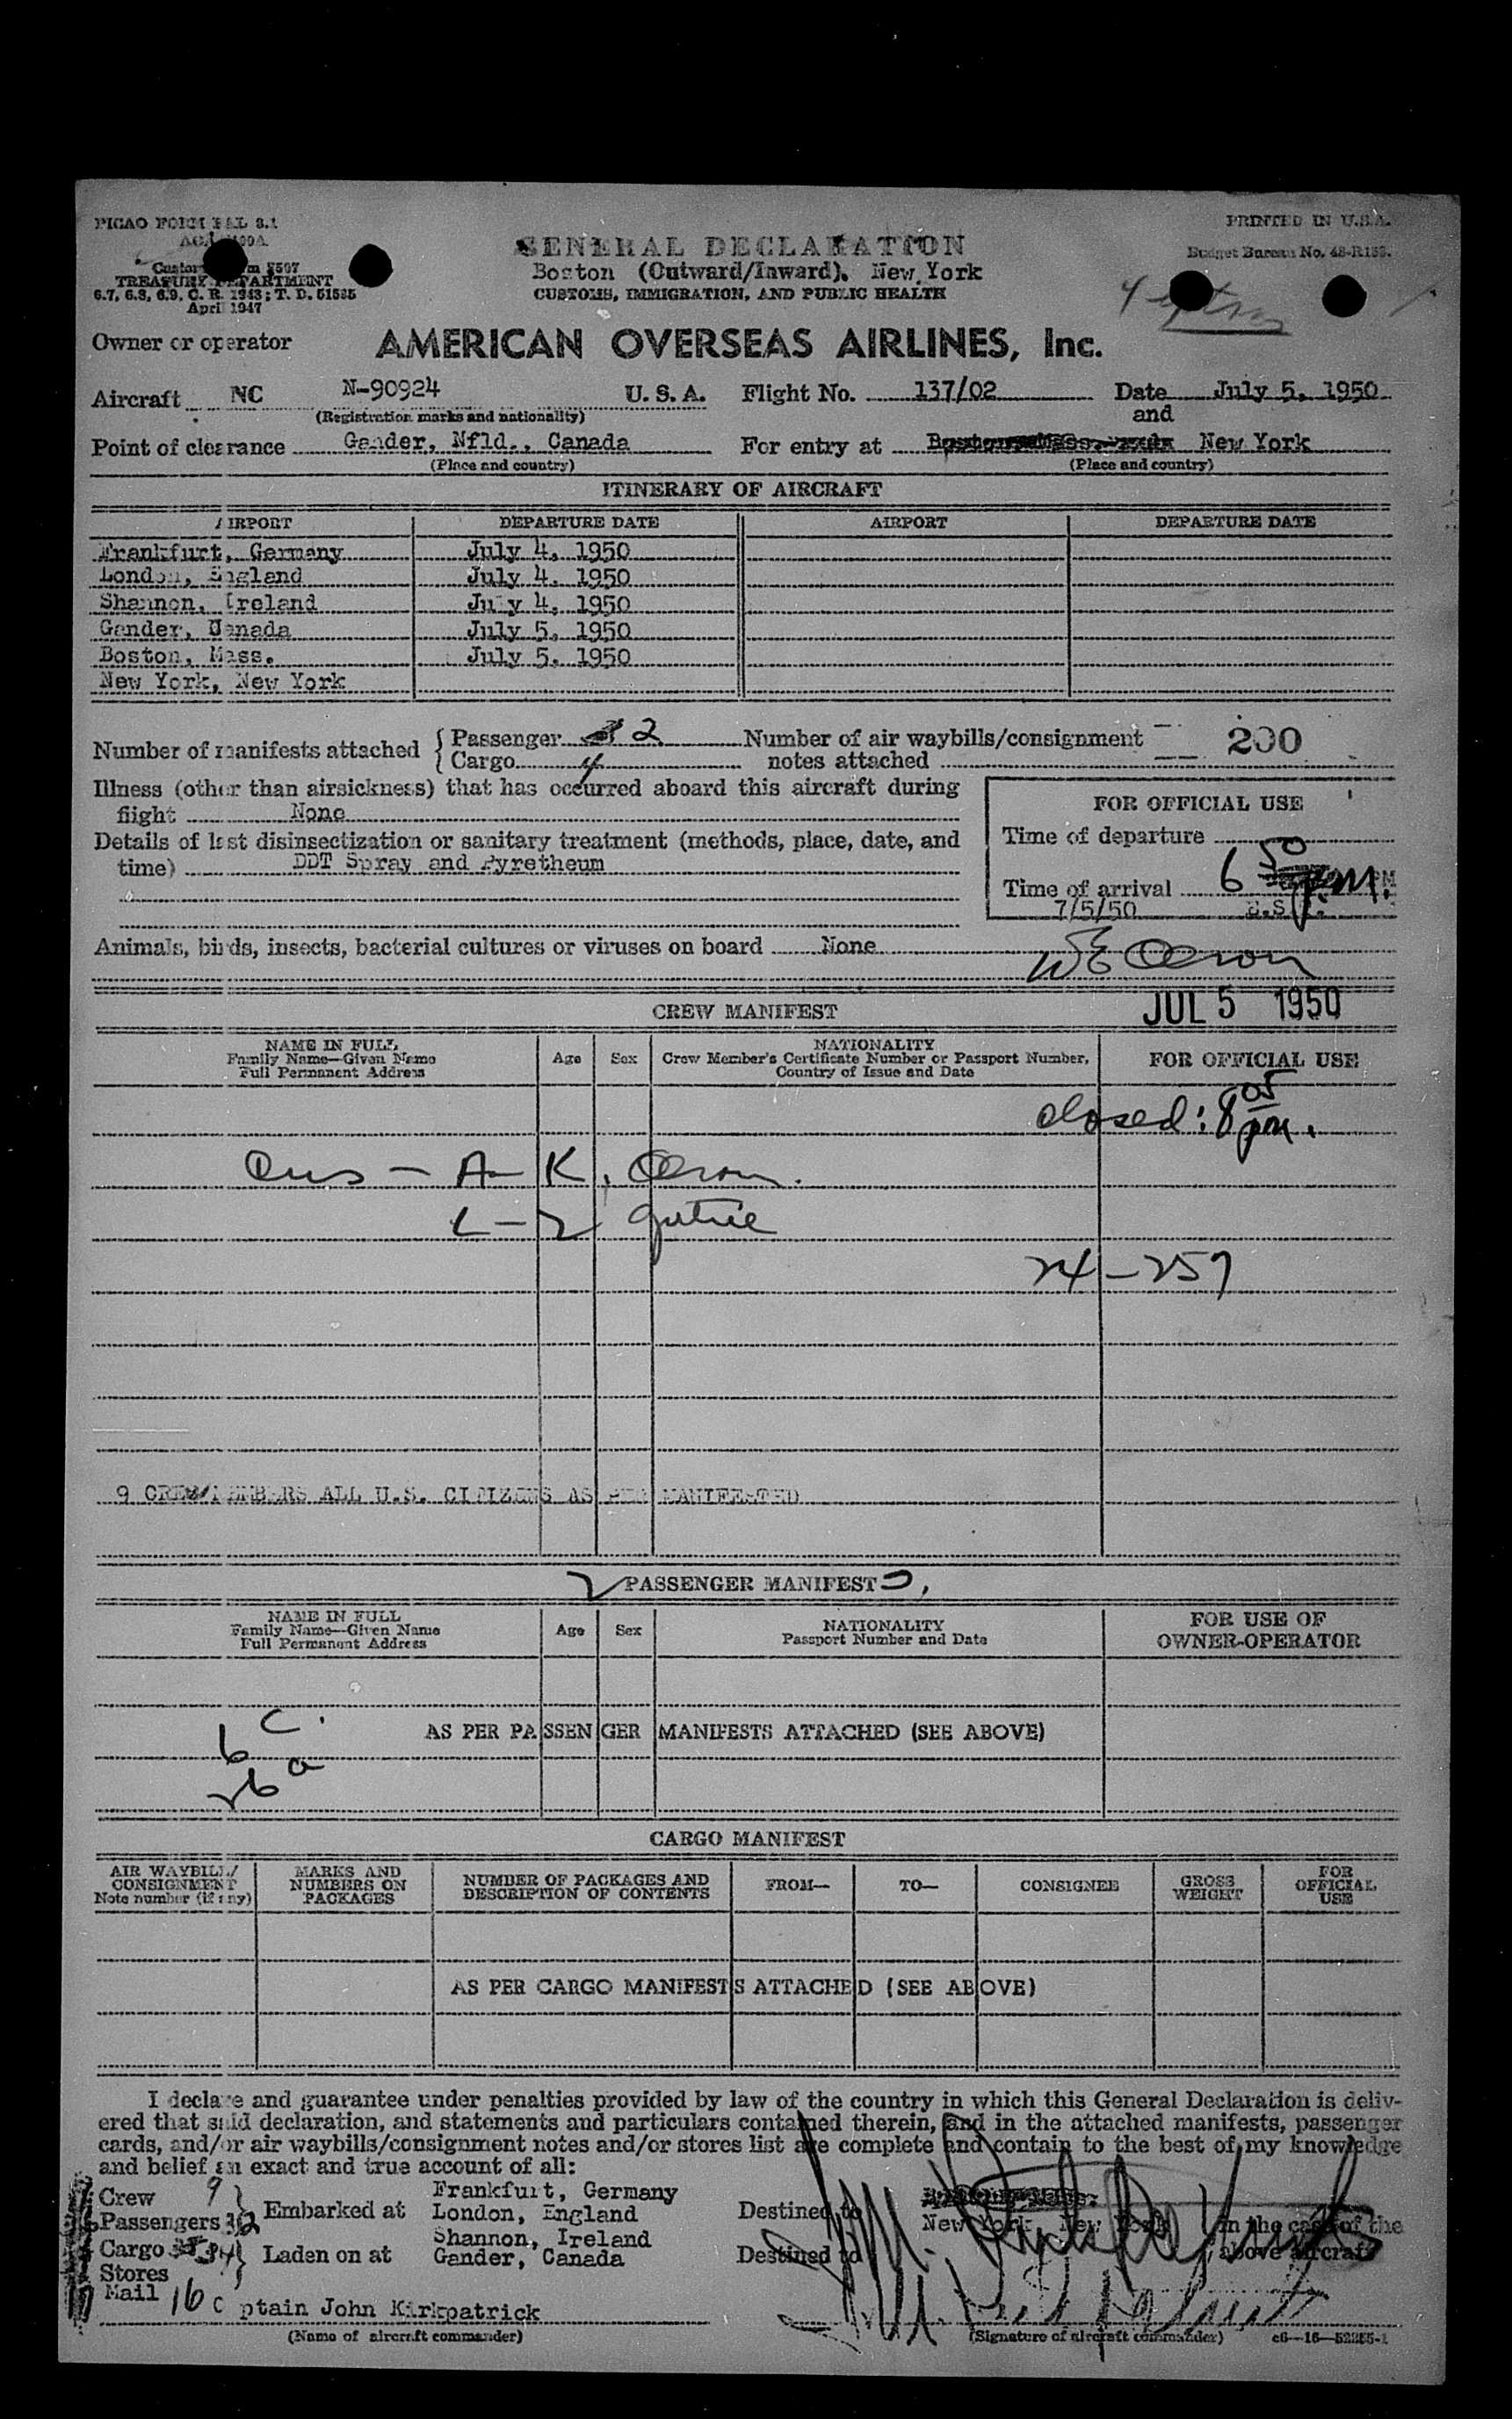 PICAO FORM
PRINTED IN U.S.A.
GENERAL DECLARATION
Budget Bureau No. 48-R153.
Boston (Outward/Inward), New York
TREASURY DEPARTMENT
CUSTOMS, IMMIGRATION, AND PUBLIC HEALTH
6.7, 6.8, 6.9, C. R. 1943; T. D. 51535
April 1947
Owner or operator AMERICAN OVERSEAS AIRLINES, Inc.
Aircraft NC N-90924 U. S. A. Flight No. 137/02 Date July 5, 1950
(Registration marks and nationality) and
Point of clearance Gander, Nfld., Canada For entry at New York
(Place and country) (Place and country)
ITINERARY OF AIRCRAFT
AIRPORT DEPARTURE DATE AIRPORT DEPARTURE DATE
Frankfurt, Germany July 4, 1950
London, England July 4, 1950
Shannon, Ireland July 4, 1950
Gander, Canada July 5, 1950
Boston, Mass. July 5, 1950
New York, New York
Number of manifests attached { Passenger 2 Number of air waybills/consignment 200
{ Cargo 4 notes attached
Illness (other than airsickness) that has occurred aboard this aircraft during
flight None
FOR OFFICIAL USE
Details of last disinsectization or sanitary treatment (methods, place, date, and
time) DDT Spray and Pyretheum
Time of departure
Time of arrival 6 50 p.m.
7/5/50
Animals, birds, insects, bacterial cultures or viruses on board None
JUL 5 1950
CREW MANIFEST
NAME IN FULL
Family Name—Given Name
Full Permanent Address
Age Sex
NATIONALITY
Crew Member's Certificate Number or Passport Number,
Country of Issue and Date
FOR OFFICIAL USE
closed: 8 05 pm.
24-257
9 CREW MEMBERS ALL U.S. CITIZENS AS PER MANIFESTED
PASSENGER MANIFEST
NAME IN FULL
Family Name—Given Name
Full Permanent Address
Age Sex
NATIONALITY
Passport Number and Date
FOR USE OF
OWNER-OPERATOR
6 c.
AS PER PASSENGER MANIFESTS ATTACHED (SEE ABOVE)
26 a
CARGO MANIFEST
AIR WAYBILL/
CONSIGNMENT
Note number (if any)
MARKS AND
NUMBERS ON
PACKAGES
NUMBER OF PACKAGES AND
DESCRIPTION OF CONTENTS
FROM— TO— CONSIGNEE
GROSS
WEIGHT
FOR
OFFICIAL
USE
AS PER CARGO MANIFESTS ATTACHED (SEE ABOVE)
I declare and guarantee under penalties provided by law of the country in which this General Declaration is deliv-
ered that said declaration, and statements and particulars contained therein, and in the attached manifests, passenger
cards, and/or air waybills/consignment notes and/or stores list are complete and contain to the best of my knowledge
and belief an exact and true account of all:
Crew 9
Passengers 32
Cargo 34
Stores
Mail 16
Embarked at
Laden on at
Frankfurt, Germany
London, England
Shannon, Ireland
Gander, Canada
Destined to
New York, New York in the case of the
Destined to above aircraft
Captain John Kirkpatrick
(Name of aircraft commander) (Signature of aircraft commander) c6—16—52255-1